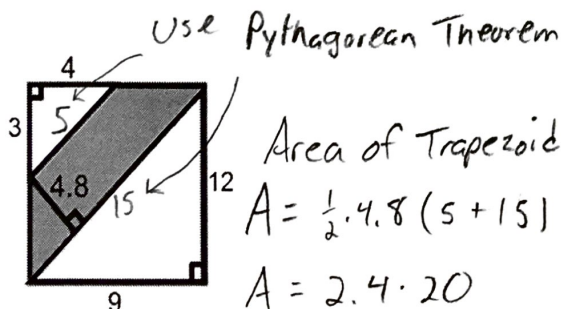 Use Pythagorean Theorem
4
3
5
4.8
15
12
9
Area of Trapezoid
A = 1/2 · 4.8 (5 + 15)
A = 2.4 · 20